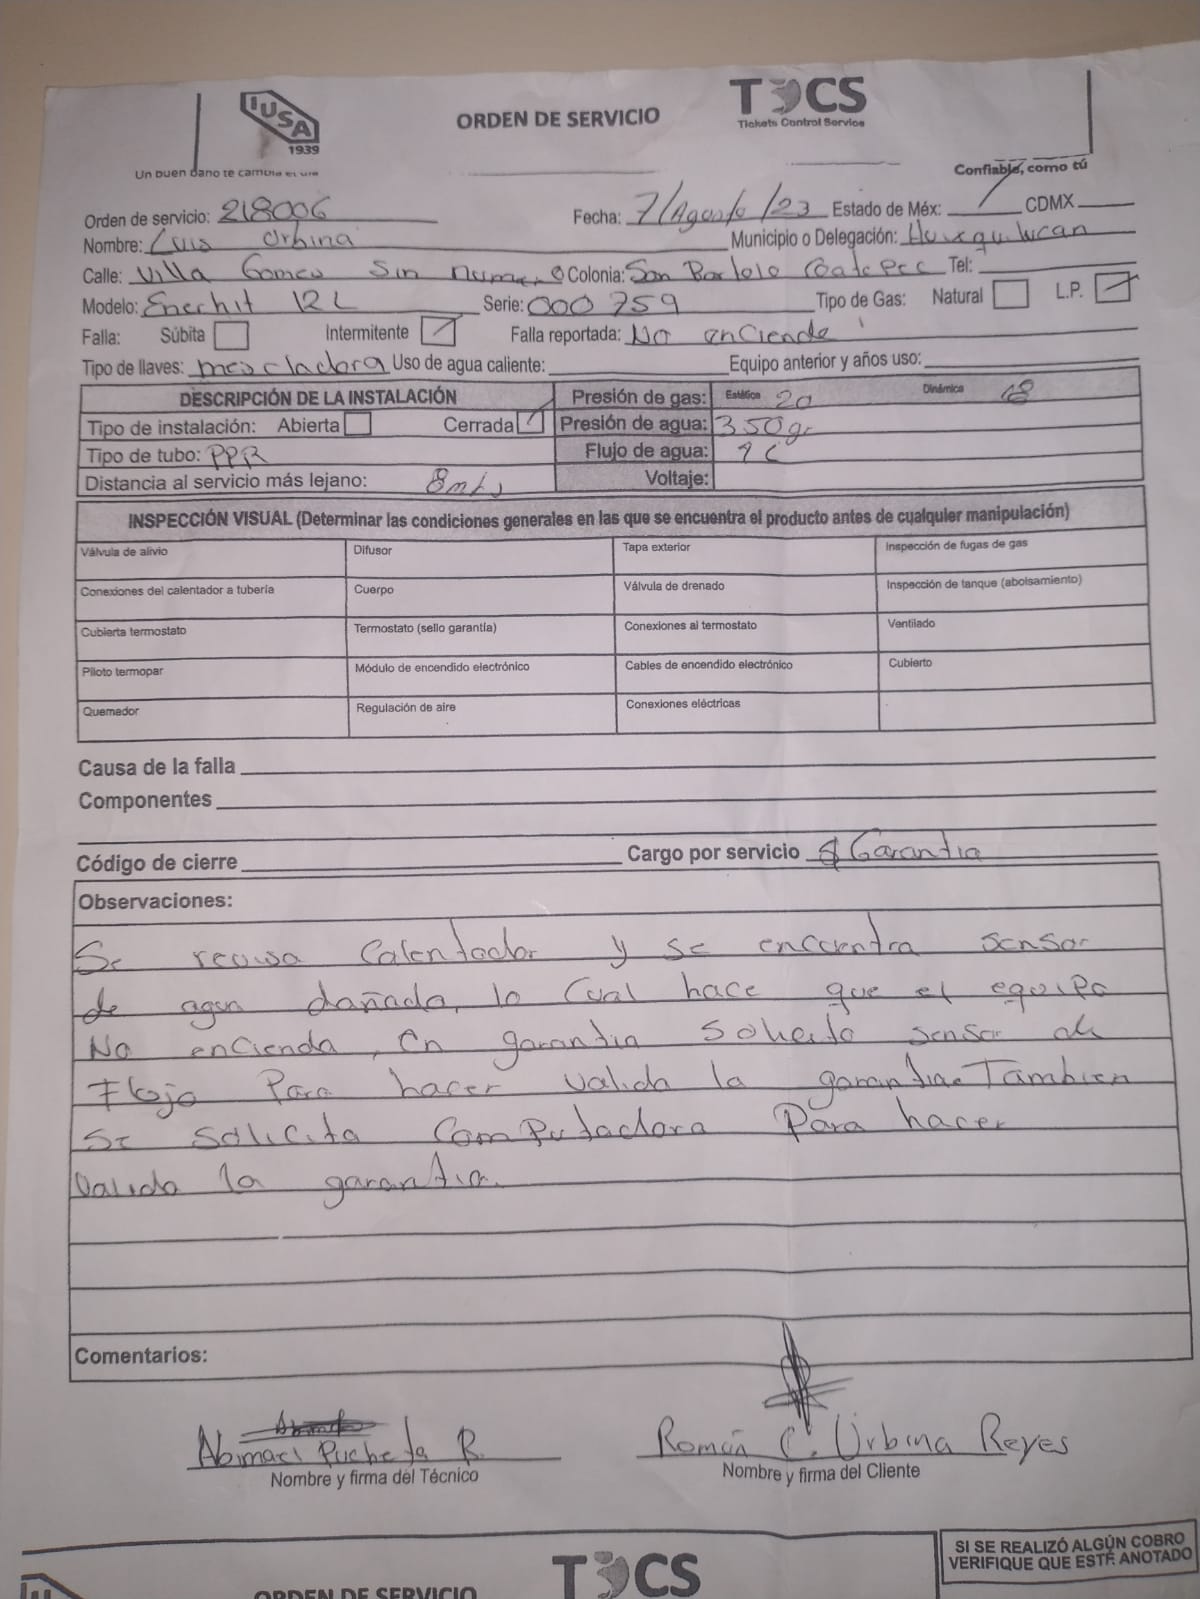 IUSA
1939
ORDEN DE SERVICIO
TOCS
Tickets Control Service
Confiable, como tú
Orden de servicio: 218006
Fecha: 7/Agosto/23 Estado de Méx: CDMX
Nombre: Luis Urbina Municipio o Delegación: Huixquilucan
Calle: Villa Gomes Sin numero Colonia: San Bartolo Coatepec Tel:
Modelo: Enerhit 12L Serie: 000759 Tipo de Gas: Natural L.P.
Falla: Súbita Intermitente Falla reportada: No enciende
Tipo de llaves: mescladora Uso de agua caliente: Equipo anterior y años uso:
DESCRIPCIÓN DE LA INSTALACIÓN Presión de gas: Estática 20 Dinámica 18
Tipo de instalación: Abierta Cerrada Presión de agua: 350gr
Tipo de tubo: PPR Flujo de agua:
Distancia al servicio más lejano: 8mts Voltaje:
INSPECCIÓN VISUAL (Determinar las condiciones generales en las que se encuentra el producto antes de cualquier manipulación)
Válvula de alivio Difusor Tapa exterior Inspección de fugas de gas
Conexiones del calentador a tubería Cuerpo Válvula de drenado Inspección de tanque (abolsamiento)
Cubierta termostato Termostato (sello garantía) Conexiones al termostato Ventilado
Piloto termopar Módulo de encendido electrónico Cables de encendido electrónico Cubierto
Quemador Regulación de aire Conexiones eléctricas
Causa de la falla
Componentes
Código de cierre Cargo por servicio $ Garantia
Observaciones:
Se revisa Calentador y se encuentra sensor
de agua dañado, lo Cual hace que el equipo
No encienda, en garantia Solicito sensor de
Flujo Para hacer valida la garantia. Tambien
se solicita Computadora Para hacer
valida la garantia.
Comentarios:
Abimael Pucheta R. Román C. Urbina Reyes
Nombre y firma del Técnico Nombre y firma del Cliente
SI SE REALIZÓ ALGÚN COBRO
VERIFIQUE QUE ESTÉ ANOTADO
TOCS
ORDEN DE SERVICIO